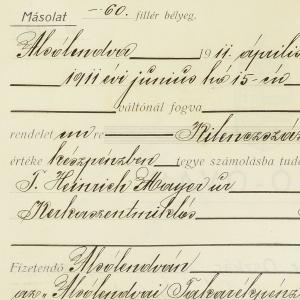 Másolat —60. fillér bélyeg.
Alsólendva 1911. április
1911 évi junius hó 15-én
váltónál fogva
rendelet em re Kilenczszáz
értéke készpénzben tegye számolásba tud
T. Heinrich Mayer úr
Kerkaszentmiklós
Fizetendő Alsólendván
az „Alsólendvai Takarékpénz